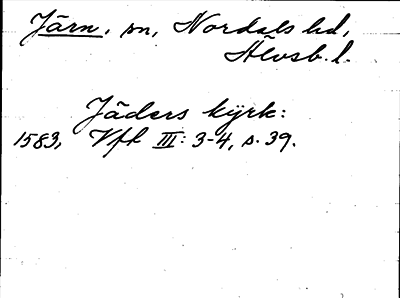 Järn, sn, Nordals hd,
Älvsb. l.
Jäders kyrk:
1583, Vft III: 3-4, s. 39.